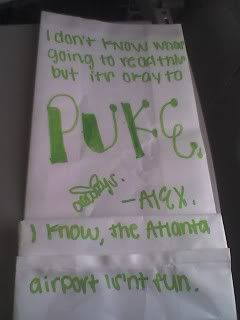 I don't know whos
going to read this
but it's okay to
PUKE.
—Alex.
I know, the Atlanta
airport isn't fun.